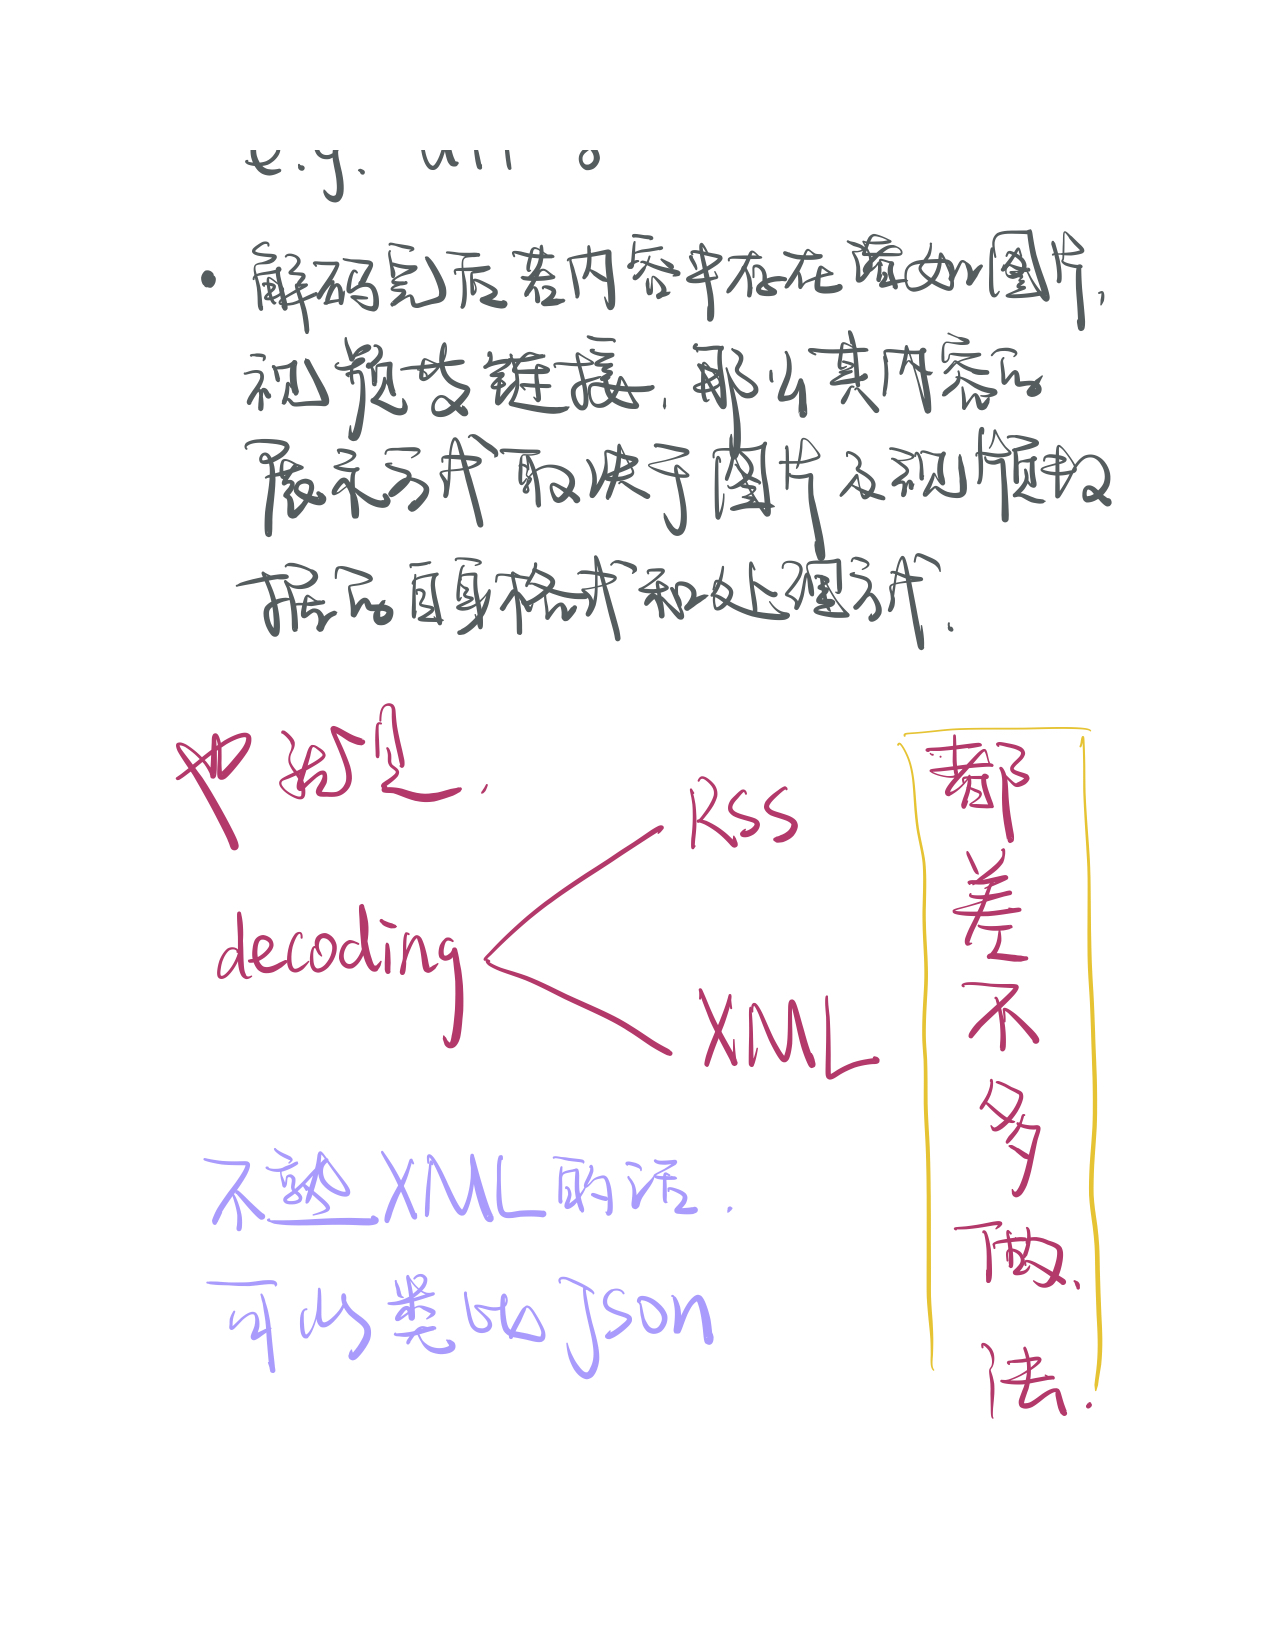 e.g.
• 解码完后若内容中存在诸如图片,
视频及链接,那么其内容的
展示方式取决于图片及视频数
据的自身格式和处理方式.
也就是.
RSS
decoding
XML
都差不多做法.
不熟XML的话.
可以类比json